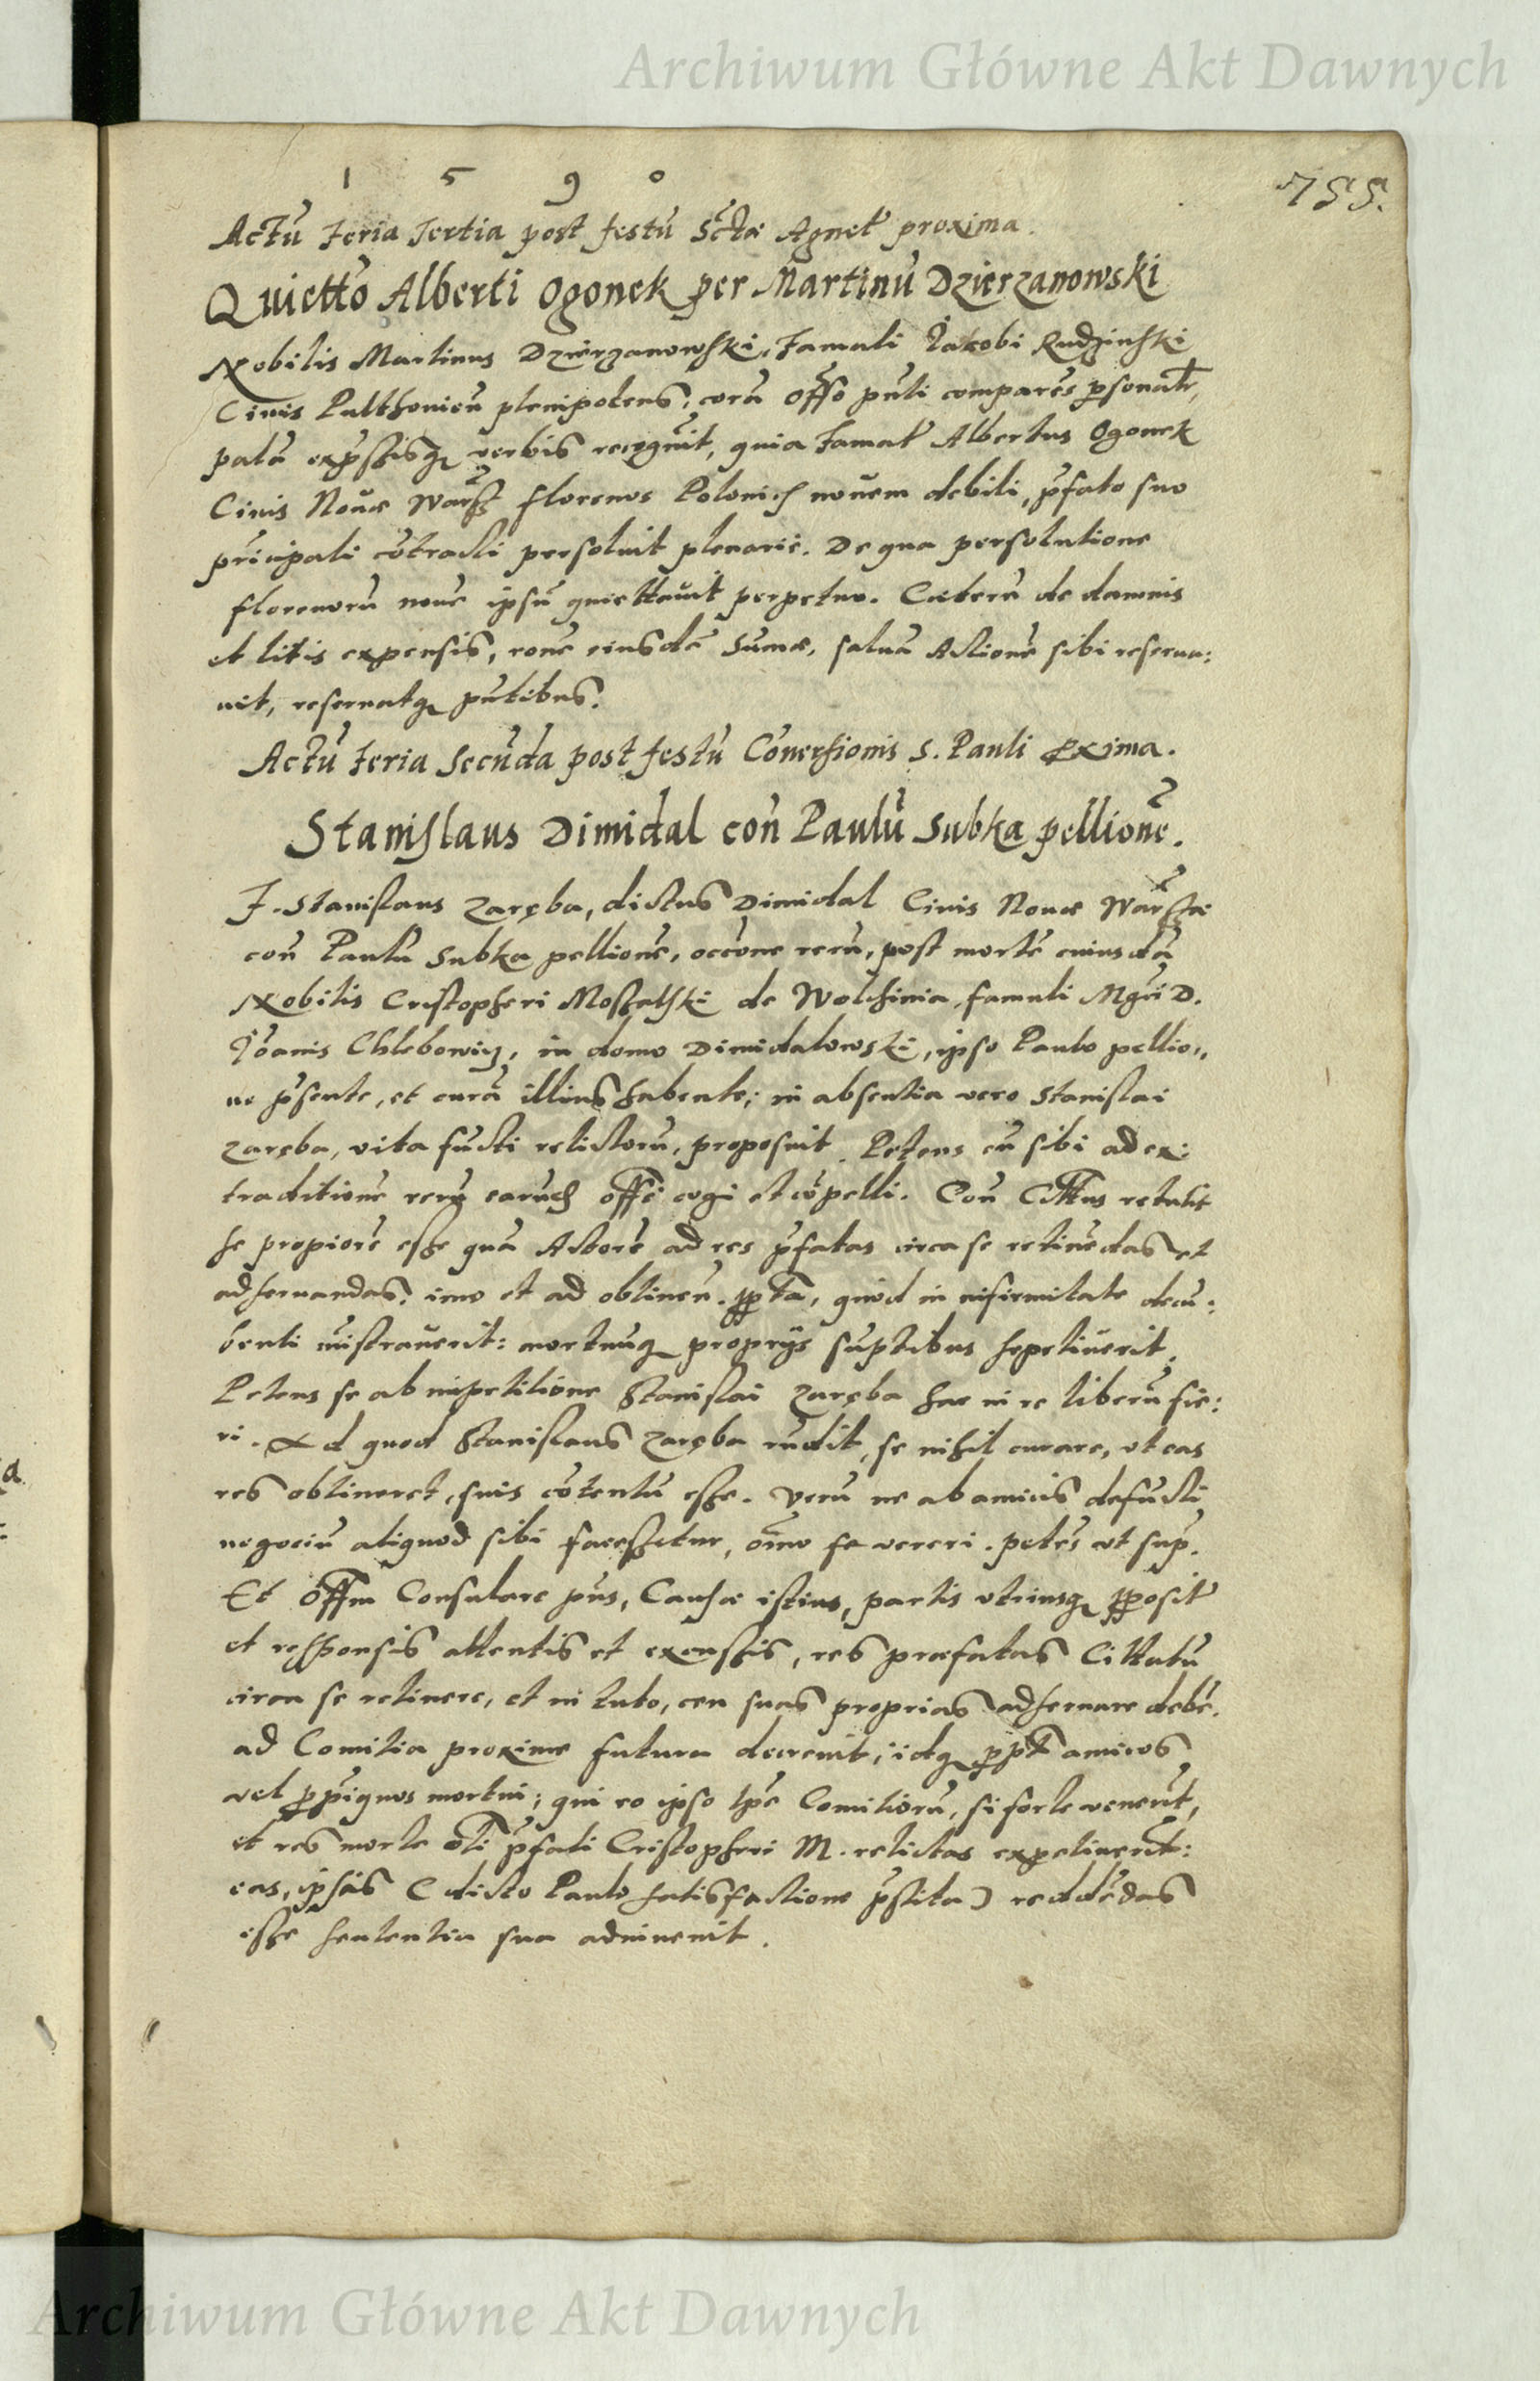 Archiwum Główne Akt Dawnych
1 5 9 0
755.
Actū feria tertia post festū Sctæ Agnet proxima.
Quiettõ Alberti Ogonek per Martinū Dzierzanowski
Nobilis Martinus Dzierzanowski, famati Jacobi Rudzinski
Civis Pulthovien plenipotens, corā offo pnti comparēs psonalr,
palā expssisq verbis recognuit, quia famat Albertus Ogonek
Civis Novæ Warss florenos Polonich novem debiti, pfato suo
prīcipali cōtracti persolvit plenarie. De qua persolutione
florenorū novē ipsū quiettavit perpetuo. Cæterū de damnis
et litis expensis, rone eiusdē Sumæ, salvā Actionē sibi reserva:
vit, reservatq pntibus.
Actū feria Secūda post festū Cōversionis S. Pauli pxima.
Stanislaus Dimidal con Paulū Subka pellionē.
F. Stanislaus Zaręba, dictus Dimidal Civis Novæ Warssæ
con Paulū Subka pellionē, occone rerū, post mortē cuiusdā
Nobilis Cristopheri de Wolhinia, famuli Mgci D.
Joānis Chlebowicz, in domo Dimidalowski, ipso Paulo pellio,,
ne psente, et curā illius habente; in absentia vero Stanislai
Zaręba, vita fūcti relictorū, proposuit. Petens eū sibi ad ex:
traditionē rerū earūd offē cogi et cōpelli. Con Cittus retulit
se propiorē esse quā Actorē ad res pfatas circa se retinēdas et
adservandas: imo et ad obtinen. ppta, quod in infirmitate decu:
benti mistraverit: mortuūq proprijs sūptibus sepeliverit.
Petens se ab impetitione Stanislai Zaręba hac in re liberū fie:
ri. Ad quod Stanislaus Zaręba rndit, se nihil curare, ut eas
res obtineret, suis cōtentū esse. Verū ne ab amicis defūcti
negociū aliquod sibi facessetur, oīno se vereri. petēs ut sup.
Et offm Consulare pns, Causæ istius, partis utriusq pposit
et responsis attentis et excussis, res præfatas Cittatū
circa se retinere, et in tuto, ceu suas proprias adservare debē.
ad Comitia proxime futura decrevit; idq ppt amicos
vel ppīquos mortui; qui eo ipso tpē Comitiorū, si forte venerīt,
et res morte oli pfati Cristopheri M. relictas expetiverīt:
eas, ipsis (dicto Paulo satisfactione pstita) reddēdas
esse sententia sua adinvenit.
Archiwum Główne Akt Dawnych